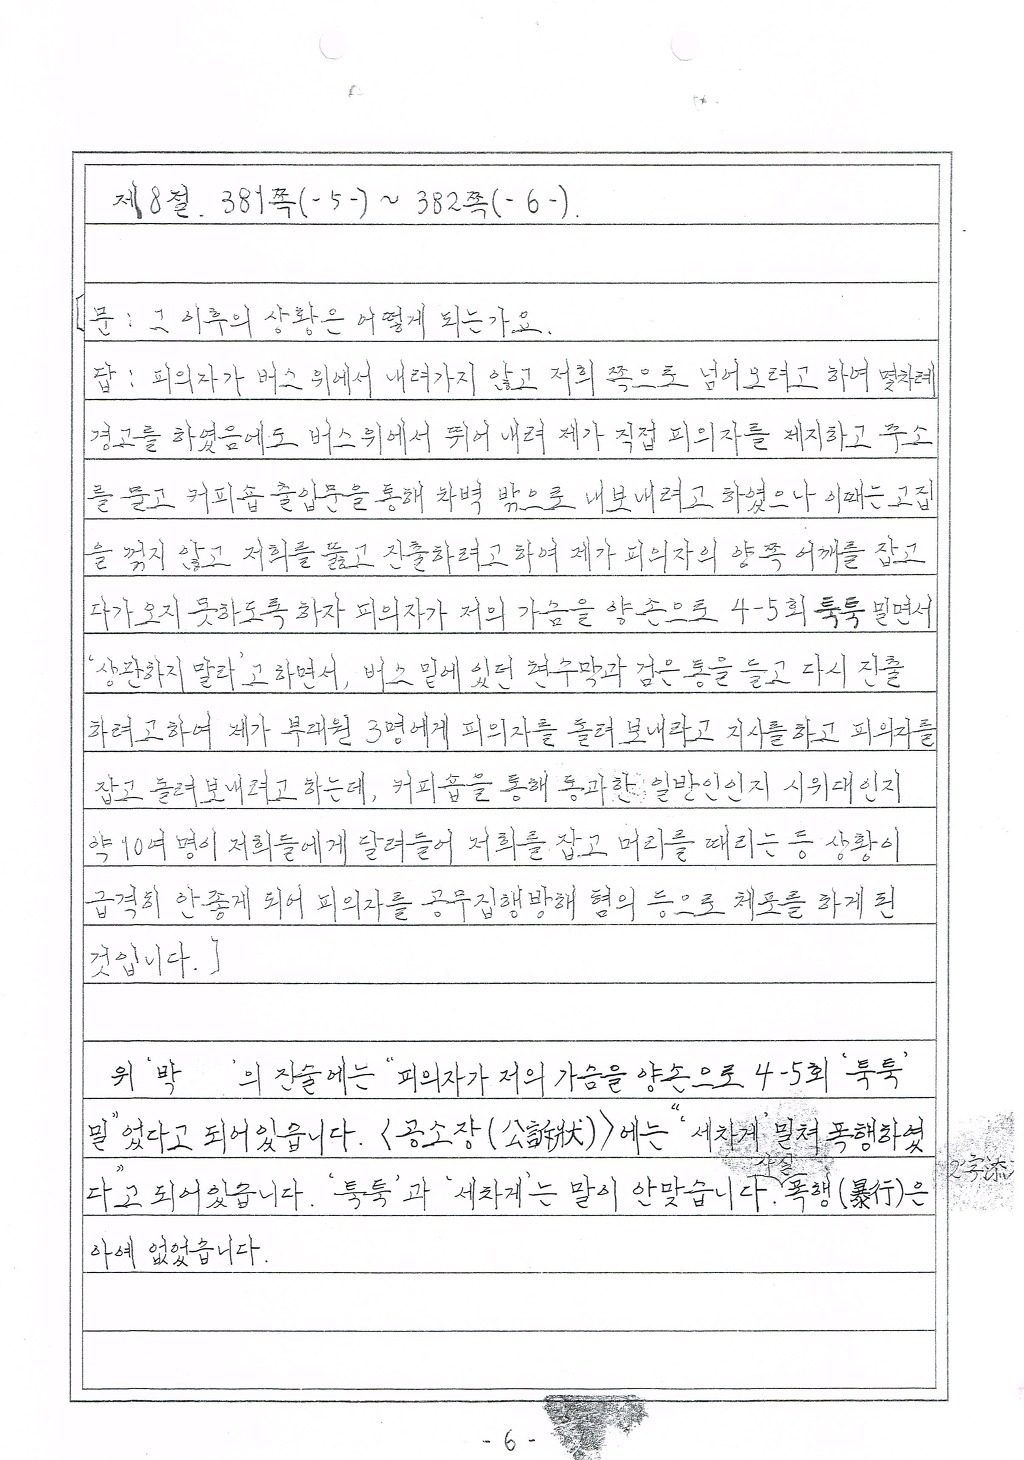 제8절. 381쪽(-5-) ~ 382쪽(-6-).
[문 : 그 이후의 상황은 어떻게 되는가요.
답 : 피의자가 버스 위에서 내려가지 않고 저희 쪽으로 넘어오려고 하여 몇차례
경고를 하였음에도 버스위에서 뛰어 내려 제가 직접 피의자를 제지하고 주소
를 묻고 커피숍 출입문을 통해 차벽 밖으로 내보내려고 하였으나 이때는 고집
을 꺾지 않고 저희를 뚫고 진출하려고 하여 제가 피의자의 양쪽 어깨를 잡고
다가오지 못하도록 하자 피의자가 저의 가슴을 양손으로 4-5회 툭툭 밀면서
'상관하지 말라'고 하면서, 버스 밑에 있던 현수막과 검은 통을 들고 다시 진출
하려고 하여 제가 부대원 3명에게 피의자를 돌려 보내라고 지시를 하고 피의자를
잡고 돌려보내려고 하는데, 커피숍을 통해 통과한 일반인인지 시위대인지
약 10여 명이 저희들에게 달려들어 저희를 잡고 머리를 때리는 등 상황이
급격히 안좋게 되어 피의자를 공무집행방해 혐의 등으로 체포를 하게 된
것입니다.]
위 '박 '의 진술에는 "피의자가 저의 가슴을 양손으로 4-5회 '툭툭'
밀"었다고 되어있습니다. <공소장(公訴狀)>에는 "'세차게' 밀쳐 폭행하였
다"고 되어있습니다. '툭툭'과 '세차게'는 말이 안맞습니다. 폭행(暴行)은
사실
2字添
아예 없었습니다.
- 6 -